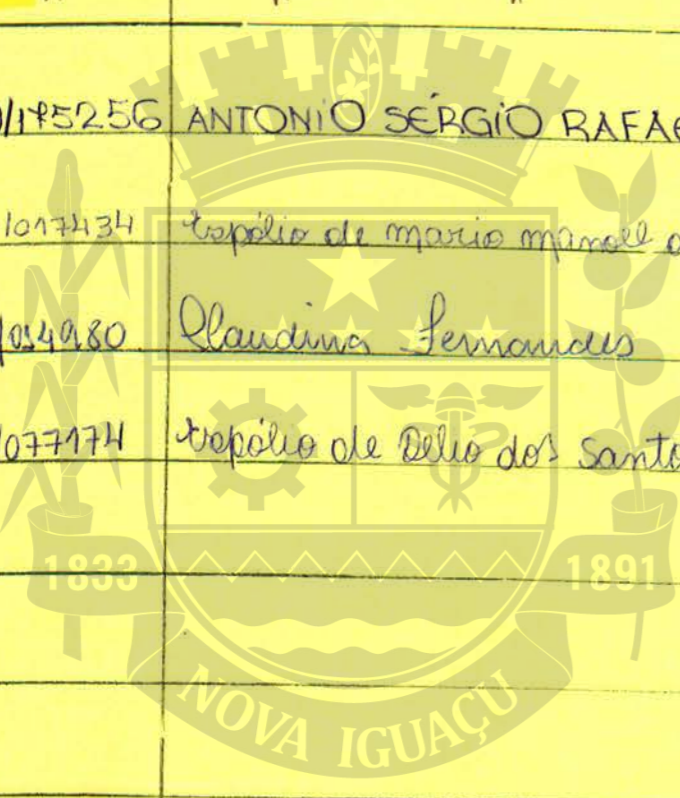 /175256 ANTONIO SÉRGIO RAFAE
/017434 Espólio de mario manoel d
Claudina Fernandes
/077174 Espólio de Delio dos Santo
1833 1891
NOVA IGUAÇU